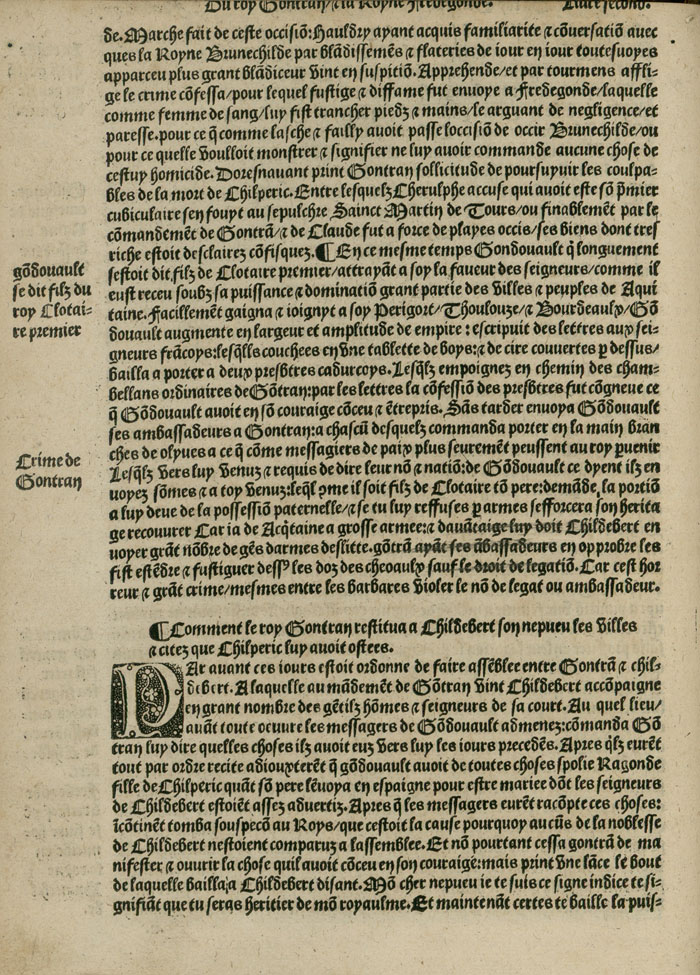 Du roy Gontran / & la Royne Fredegonde. Liure second.
de. Marche fait de ceste occisiō: Hauldry ayant acquis familiarite & cōuersatiō auec
ques la Royne Brunechilde par blādissemēs & flateries de iour en iour toutesuoyes
apparceu plus grant blādiceur vint en suspitiō. Apprehende/et par tourmens affli-
ge le crime cōfessa/pour lequel fustige & diffame fut enuoye a Fredegonde/laquelle
comme femme de sang/luy fist trancher piedz & mains/le arguant de negligence/et
paresse. pour ce q̄ comme lasche & failly auoit passe loccisiō de occir Brunechilde/ou
pour ce quelle voulloit monstrer & signifier ne luy auoir commande aucune chose de
cestuy homicide. Doresnauant print Gontran sollicitude de poursuyuir les coulpa-
bles de la mort de Chilperic. Entre lesquelz Cherulphe accuse qui auoit este sō p̄mier
cubiculaire sen fouyt au sepulchre Sainct Martin de Tours/ou finablemēt par le
cōmandemēt de Gontrā/& de Claude fut a force de playes occis/ses biens dont tres
riche estoit desclairez cōfisquez. ¶ En ce mesme temps Gondouault q̄ longuement
gōdouault
sestoit dit filz de Clotaire premier/attrayāt a soy la faueur des seigneurs/comme il
se dit filz du
eust receu soubz sa puissance & dominatiō grant partie des villes & peuples de Aqui
roy Clotai-
taine. Facillemēt gaigna & ioignyt a soy Perigort/Thoulouze/& Bourdeaulx/Gō
re premier
douault augmente en largeur et amplitude de empire: escripuit des lettres aux sei-
gneurs frācoys: lesq̄lls couchees en vne tablette de boys: & de cire couuertes p̱ dessus/
bailla a porter a deux presbtres cadurcoys. Lesq̄lz empoignez en chemin des cham-
bellans ordinaires de Gōtran: par les lettres la cōfessiō des presbtres fut cōgneue ce
q̄ Gōdouault auoit en sō couraige cōceu & ētrepris. Sās tarder enuoya Gōdouault
ses ambassadeurs a Gontran: a chascū desquelz commanda porter en la main bran
ches de olyues a ce q̄ cōme messagiers de paix plus seuremēt peussent au roy p̱uenir
Crime de
Lesq̄lz vers luy venuz & requis de dire leur nō & natiō: de Gōdouault ce dyent ilz en
Gontran
uoyez sōmes & a toy venuz: leq̄l ꝯme il soit filz de Clotaire tō pere: demāde la portiō
a luy deue de la possessiō paternelle/& se tu luy reffuses p̱ armes sefforcera son herita
ge recouurer Car ia de Acq̄taine a grosse armee: & dauātaige luy doit Childebert en
uoyer grāt nōbre de gēs darmes deslitte. gōtrā ayāt ses ābassadeurs en opprobre les
fist estēdre & fustiguer dessꝰ les doz des cheuaulx sauf le droit de legatiō. Car cest hor
reur & grāt crime/mesmes entre les barbares violer le nō de legat ou ambassadeur.
¶ Comment le roy Gontran restitua a Childebert son nepueu les villes
& citez que Chilperic luy auoit ostees.
PAr auant ces iours estoit ordonne de faire assēblee entre Gontrā & chil-
debert. A laquelle au mādemēt de Gōtran vint Childebert accōpaigne
en grant nombre des gētilz hōmes & seigneurs de sa court. Au quel lieu/
auāt toute oeuure les messagers de Gōdouault admenez: cōmanda Gō
tran luy dire quelles choses ilz auoit euz vers luy les iours precedēs. Apres q̄lz eurēt
tout par ordre recite adiouxterēt q̄ gōdouault auoit de toutes choses spolie Ragonde
fille de Chilperic quāt sō pere lēuoya en espaigne pour estre mariee dōt les seigneurs
de Childebert estoiēt assez aduertiz. Apres q̄ les messagers eurēt racōpte ces choses:
īcōtinēt tomba souspecō au Roys/que cestoit la cause pourquoy aucūs de la noblesse
de Childebert nestoient comparuz a lassemblee. Et nō pourtant cessa gontrā de ma
nifester & ouurir la chose quil auoit cōceu en son couraige: mais print vne lāce le bout
de laquelle bailla a Childebert disant. Mō cher nepueu ie te suis ce signe indice te si-
gnifiāt que tu seras heritier de mō royaulme. Et maintenāt certes te baille la puis-